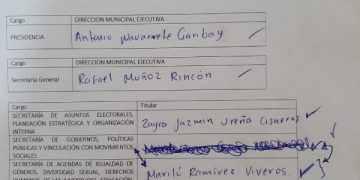 Cargo DIRECCION MUNICIPAL EJECUTIVA
PRESIDENCIA Antonio Navarrete Garibay
Cargo DIRECCION MUNICIPAL EJECUTIVA
Secretaría General Rafael Muñoz Rincón
Cargo Titular
SECRETARÍA DE ASUNTOS ELECTORALES,
PLANEACIÓN ESTRATÉGICA Y ORGANIZACIÓN
INTERNA
Zayra Jazmin Ureña Cisneros
SECRETARÍA DE GOBIERNOS, POLÍTICAS
PÚBLICAS Y VINCULACIÓN CON MOVIMIENTOS
SOCIALES
SECRETARÍA DE AGENDAS DE IGUALDAD DE
GÉNEROS, DIVERSIDAD SEXUAL, DERECHOS
Mariló Ramírez Viveros.